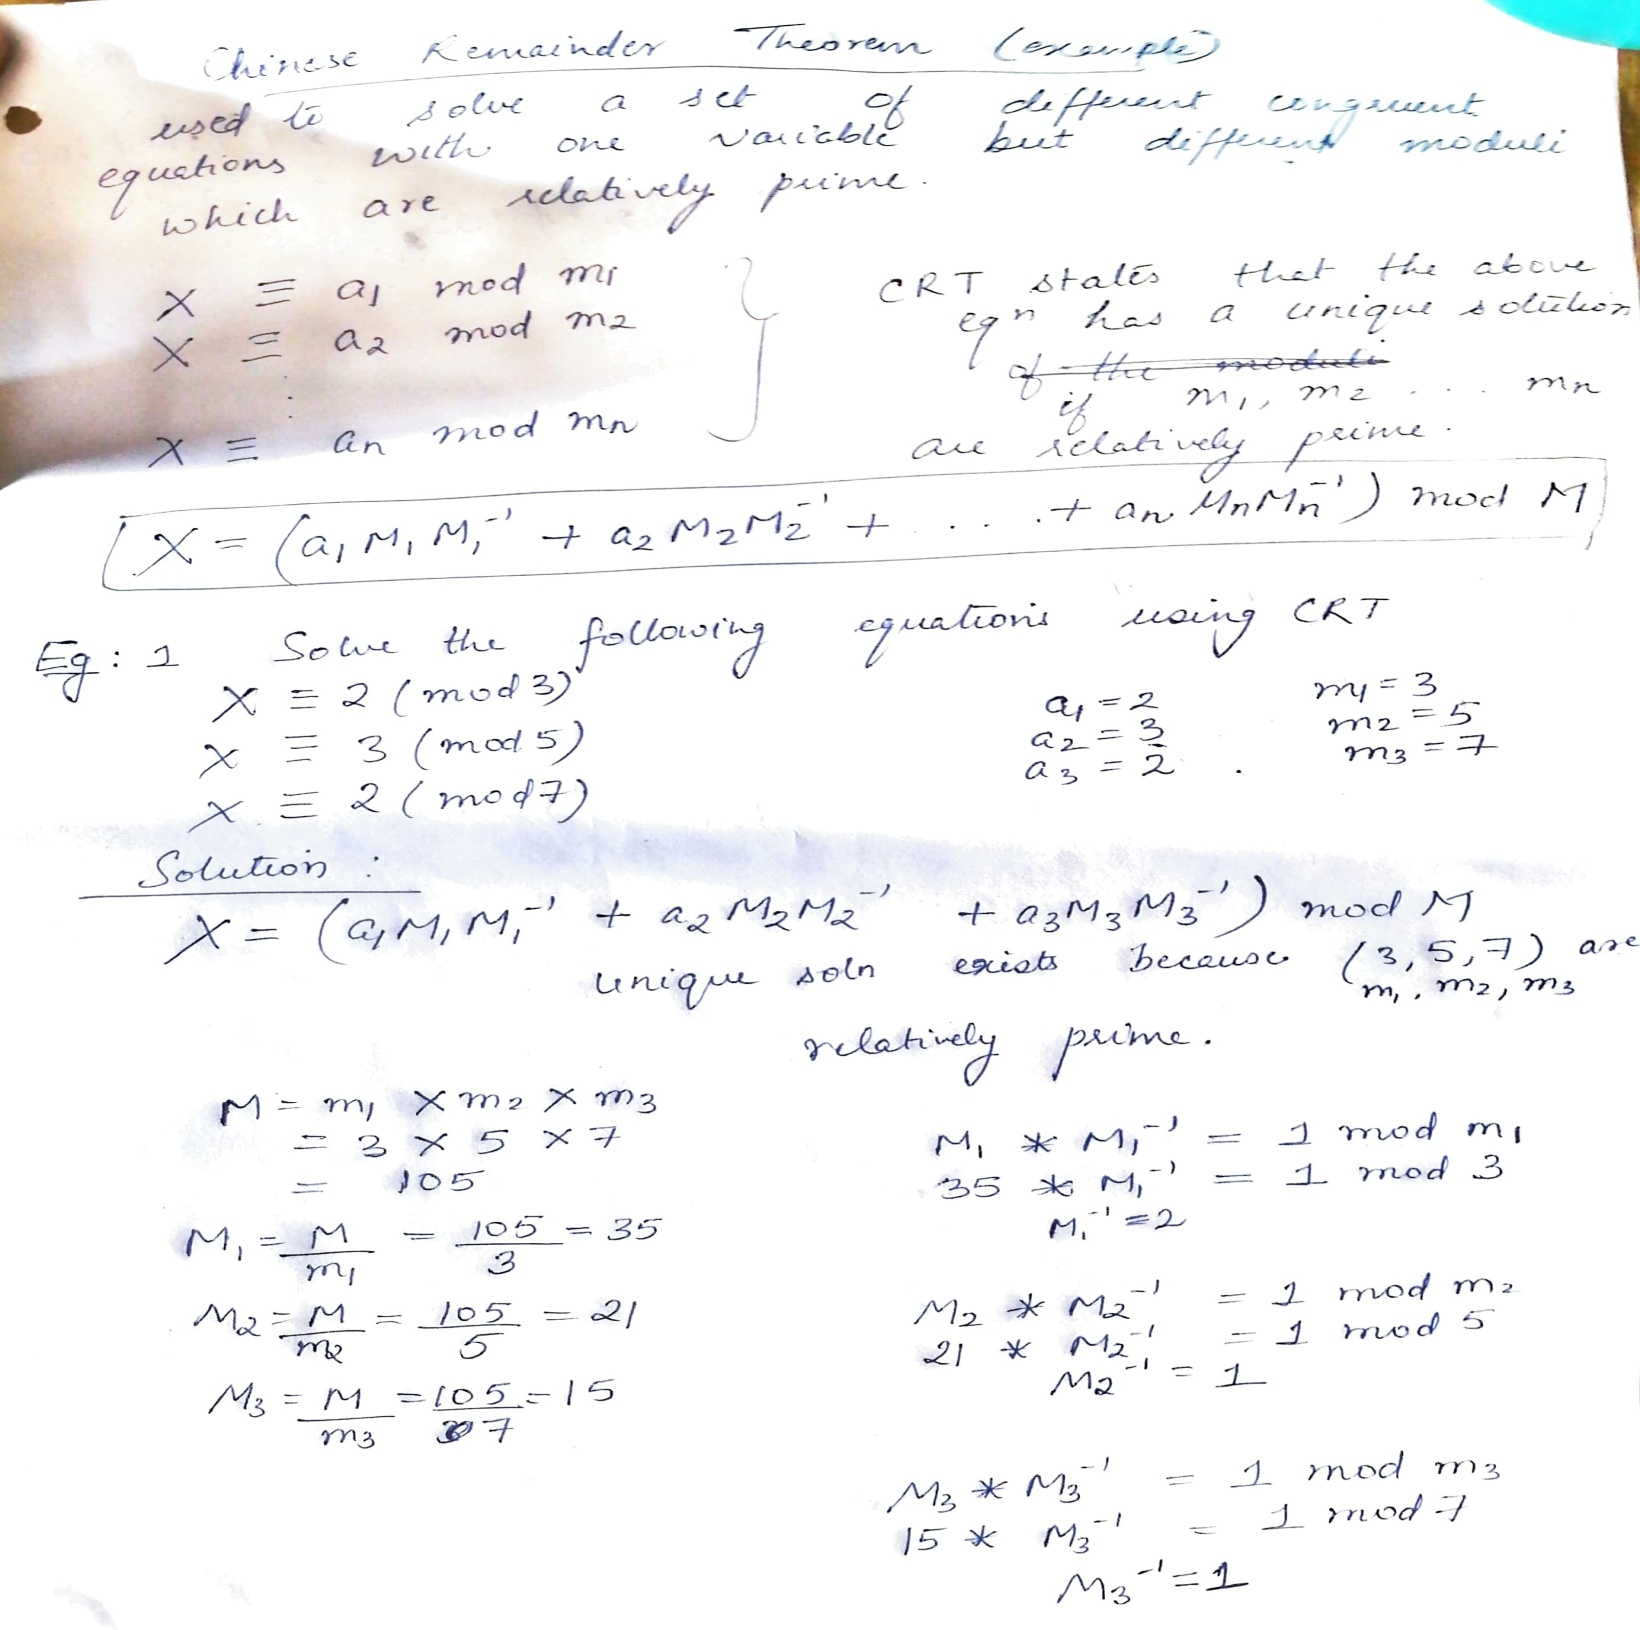 Chinese Remainder Theorem (example)
used to solve a set of different congruent
equations with one variable but different moduli
which are relatively prime.
X ≡ a1 mod m1
X ≡ a2 mod m2
⋮
X ≡ an mod mn
CRT states that the above
eqn has a unique solution
of the moduli
if m1, m2 .... mn
are relatively prime.
X = (a1 M1 M1⁻¹ + a2 M2 M2⁻¹ + .... + an Mn Mn⁻¹) mod M
Eg: 1 Solve the following equations using CRT
X ≡ 2 (mod 3)
X ≡ 3 (mod 5)
X ≡ 2 (mod 7)
a1 = 2 m1 = 3
a2 = 3 m2 = 5
a3 = 2 . m3 = 7
Solution :
X = (a1 M1 M1⁻¹ + a2 M2 M2⁻¹ + a3 M3 M3⁻¹) mod M
unique soln exists because (3, 5, 7) are
m1, m2, m3
relatively prime.
M = m1 X m2 X m3
= 3 X 5 X 7
= 105
M1 = M/m1 = 105/3 = 35
M2 = M/m2 = 105/5 = 21
M3 = M/m3 = 105/7 = 15
M1 * M1⁻¹ = 1 mod m1
35 * M1⁻¹ = 1 mod 3
M1⁻¹ = 2
M2 * M2⁻¹ = 1 mod m2
21 * M2⁻¹ = 1 mod 5
M2⁻¹ = 1
M3 * M3⁻¹ = 1 mod m3
15 * M3⁻¹ = 1 mod 7
M3⁻¹ = 1